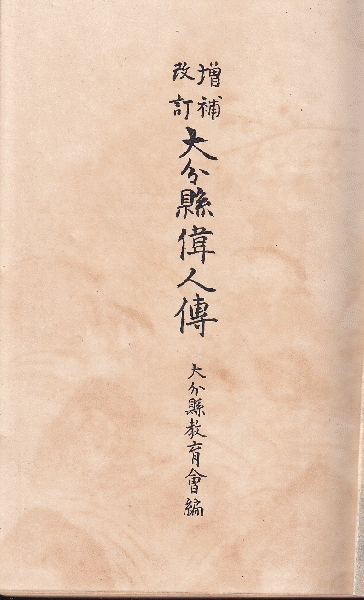 增補
改訂
大分縣偉人傳
大分縣教育會編